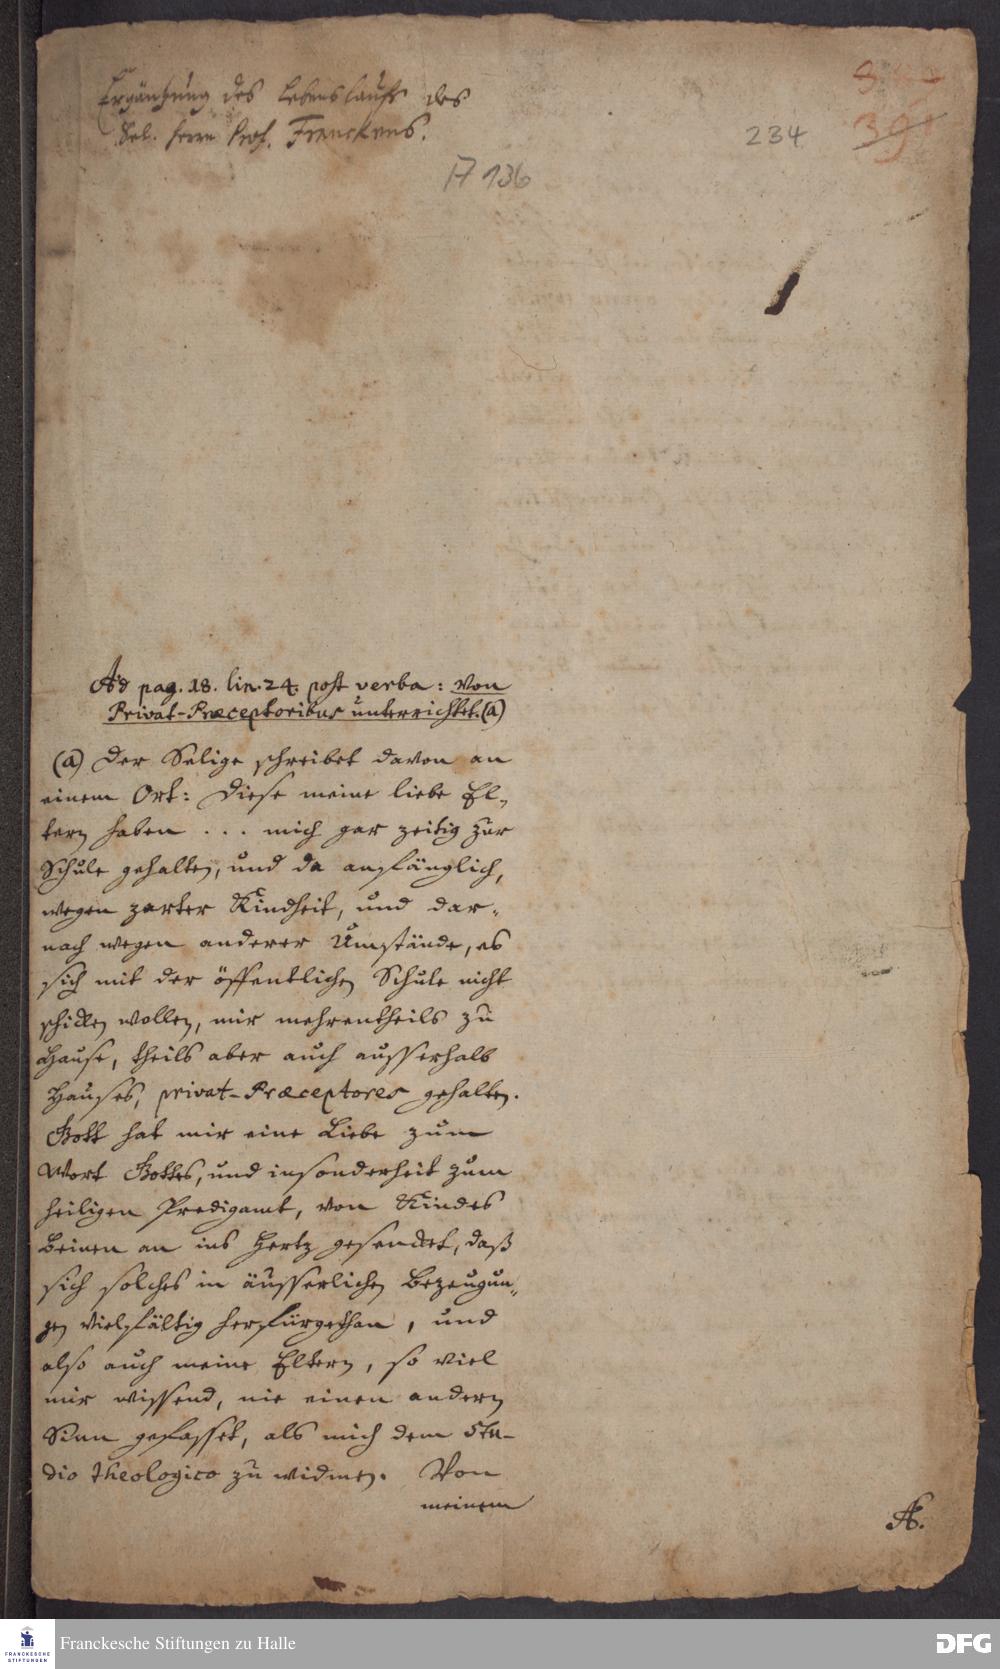 Ergäntzung des Lebenslaufs des
Sel. Herrn Prof. Franckens.
234
A 136
Ad pag. 18. lin. 24. post verba: Von
Privat-Præceptoribus unterrichtet. (a)
(a) Der Selige schreibet davon an
einem Ort: Diese meine liebe El-
tern haben ... mich gar zeitig zur
Schule gehalten, und da anfänglich,
wegen zarter Kindheit, und dar-
nach wegen anderer Umstände, es
sich mit der öffentlichen Schule nicht
schicken wollen, mir mehrentheils zu
Hause, theils aber auch ausserhalb
Hauses, privat-Præceptores gehalten.
Gott hat mir eine Liebe zum
Wort Gottes, und insonderheit zum
heiligen Predigamt, von Kindes
Beinen an ins Hertz gesencket, daß
sich solches in äusserlichen Bezeugun-
gen vielfältig herfürgethan, und
also auch meine Eltern, so viel
mir wissend, nie einen andern
Sinn gefasset, als mich dem Stu-
dio theologico zu widmen. Von
meinem
A.
Franckesche Stiftungen zu Halle
FRANCKESCHE
STIFTUNGEN
DFG